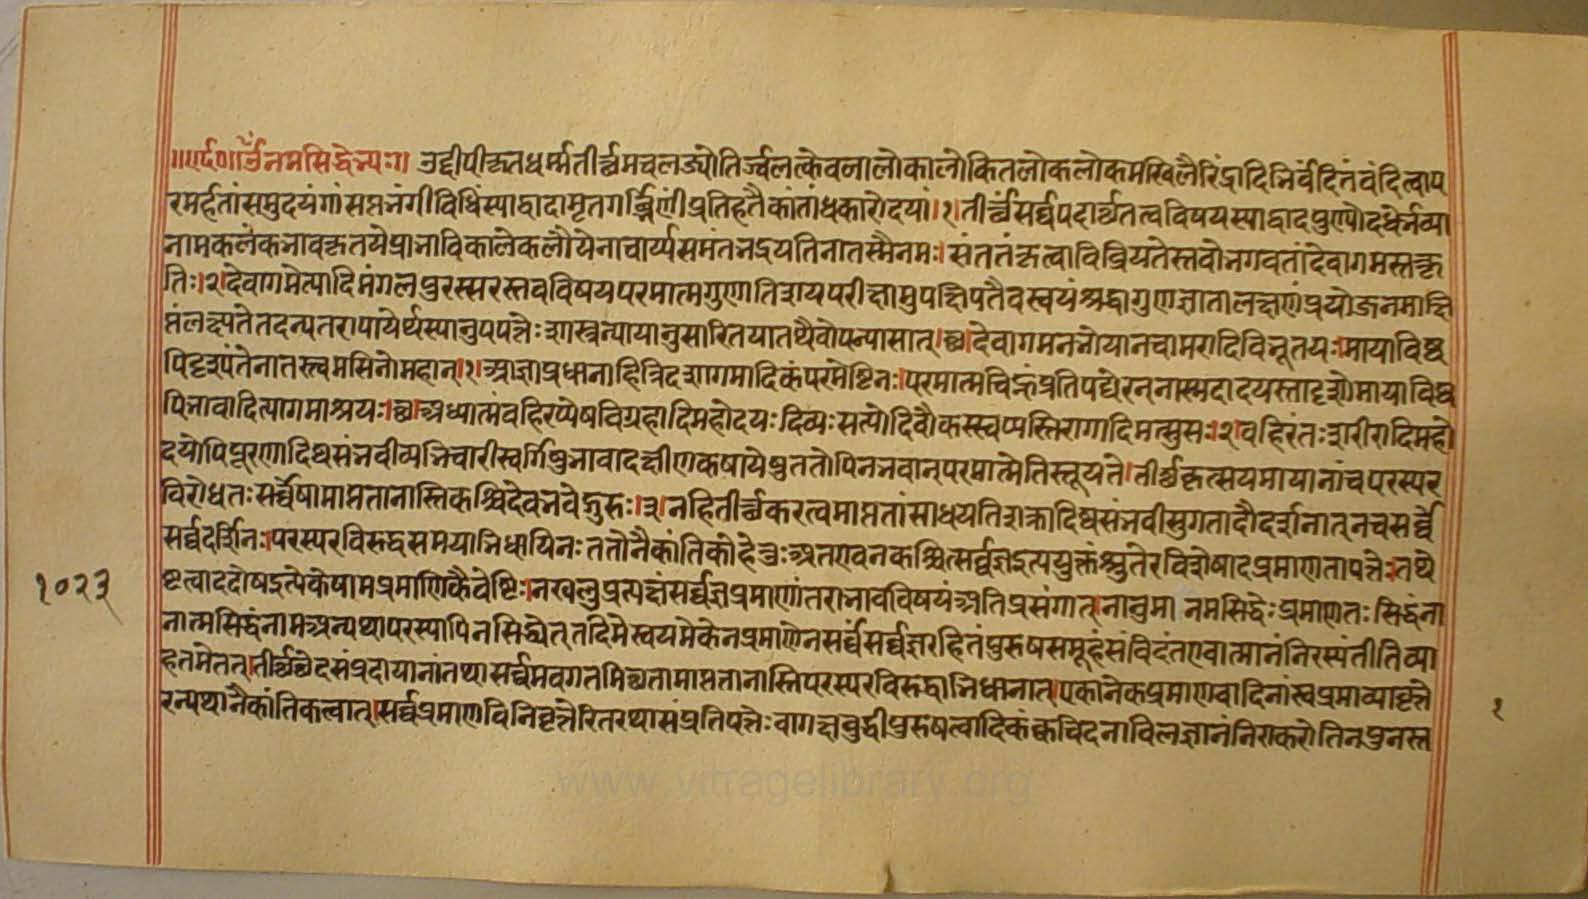 ॥ए५०॥ ॐ नमसिद्धेभ्यः॥ उद्दीपीकृतधर्म्मतीर्थमचलज्योतिर्ज्वलत्केवलालोकालोकितलोकलोकमखिलैरिंद्रादिभिर्वंदितं वंदित्वा प
रमर्हतां समुदयं गां सप्तभंगीविधिं स्याद्वादामृतगर्भिणीं प्रतिहतैकांतांधकारोदयां।१। तीर्थं सर्वपदार्थतत्वविषयस्याद्वादपुण्योदधेर्भव्या
नामकलंकभावकृतये प्राभावि काले कलौ येनाचार्य्यसमंतभद्रयतिना तस्मै नमः। संततं कृत्वा विव्रियते स्तवो भगवतां देवागमस्तत्कृ
तिः।२। देवागमेत्यादिमंगलपुरस्सरस्तवविषयपरमात्मगुणातिशयपरीक्षामुपक्षिपतैव स्वयं श्रद्धागुणज्ञातालक्षणं प्रयोजनमाक्षि
प्तं लक्ष्यते तदन्यतरापायेर्थस्यानुपपत्तेः शास्त्रन्यायानुसारितया तथैवोपन्यासात्।छ। देवागमनभोयानचामरादिविभूतयः। मायाविष्व
पि दृश्यंते नातस्त्वमसि नो महान्।१। आज्ञाप्रधाना हि त्रिदशागमादिकं परमेष्टिनः। परमात्मचिह्नं प्रतिपद्येरन् नास्मदादयस्तादृशो मायाविष्व
पि भावादित्यागमाश्रयः।छ। अध्यात्मं वहिरप्येष विग्रहादिमहोदयः दिव्यः सत्यो दिवौकस्स्वप्यस्ति रागादिमत्सु सः।२। वहिरंतः शरीरादिमहो
दयोपि पूरणादिष्वसंभवी व्यभिचारी स्वर्गिषु भावादक्षीणकषायेषु ततोपि न भवान् परमात्मेति स्तूयते। तीर्थकृत्समयमायानां च परस्पर
विरोधतः सर्वेषामाप्तता नास्ति कश्चिदेव भवेद्गुरुः।३। न हि तीर्थकरत्वमाप्ततां साधयति शक्रादिष्वसंभवी सुगतादौ दर्शनात् न च सर्वे
सर्वदर्शिनः। परस्परविरुद्धसमयाभिधायिनः ततोनैकांतिको हेतुः अत एव न कश्चित्सर्वज्ञ इत्ययुक्तं श्रुतेरविशेषादप्रमाणतापत्तेः तथे
ष्टत्वाददोष इत्येकेषामप्रमाणिकैवेष्टिः। न खलु प्रत्यक्षं सर्वज्ञप्रमाणंतराभावविषयं अतिप्रसंगात्। नानुमानमसिद्धेः प्रमाणतः सिद्धं ना
नात्मसिद्धं नाम अन्यथा परस्यापि न सिद्ध्येत् तदिमे स्वयमेकेन प्रमाणेन सर्वं सर्वज्ञरहितं पुरुषसमूहं संविदंत एवात्मानं निरस्यंतीति व्या
हतमेतत्। तीर्थछेदसंप्रदायानां तथा सर्वमवगतमिच्छतामाप्तता नास्ति परस्परविरुद्धाभिधानात्। एकानेकप्रमाणवादिनां स्वप्रमाव्यावृत्ते
रन्यथानैकांतिकत्वात्। सर्वप्रमाणविनिवृत्तेरितरथा संप्रतिपत्तेः वागक्षबुद्धीपुरुषत्वादिकं क्वचिदनाविलज्ञानं निराकरोति न पुनस्त
१०२३
१
www.vitragelibrary.org